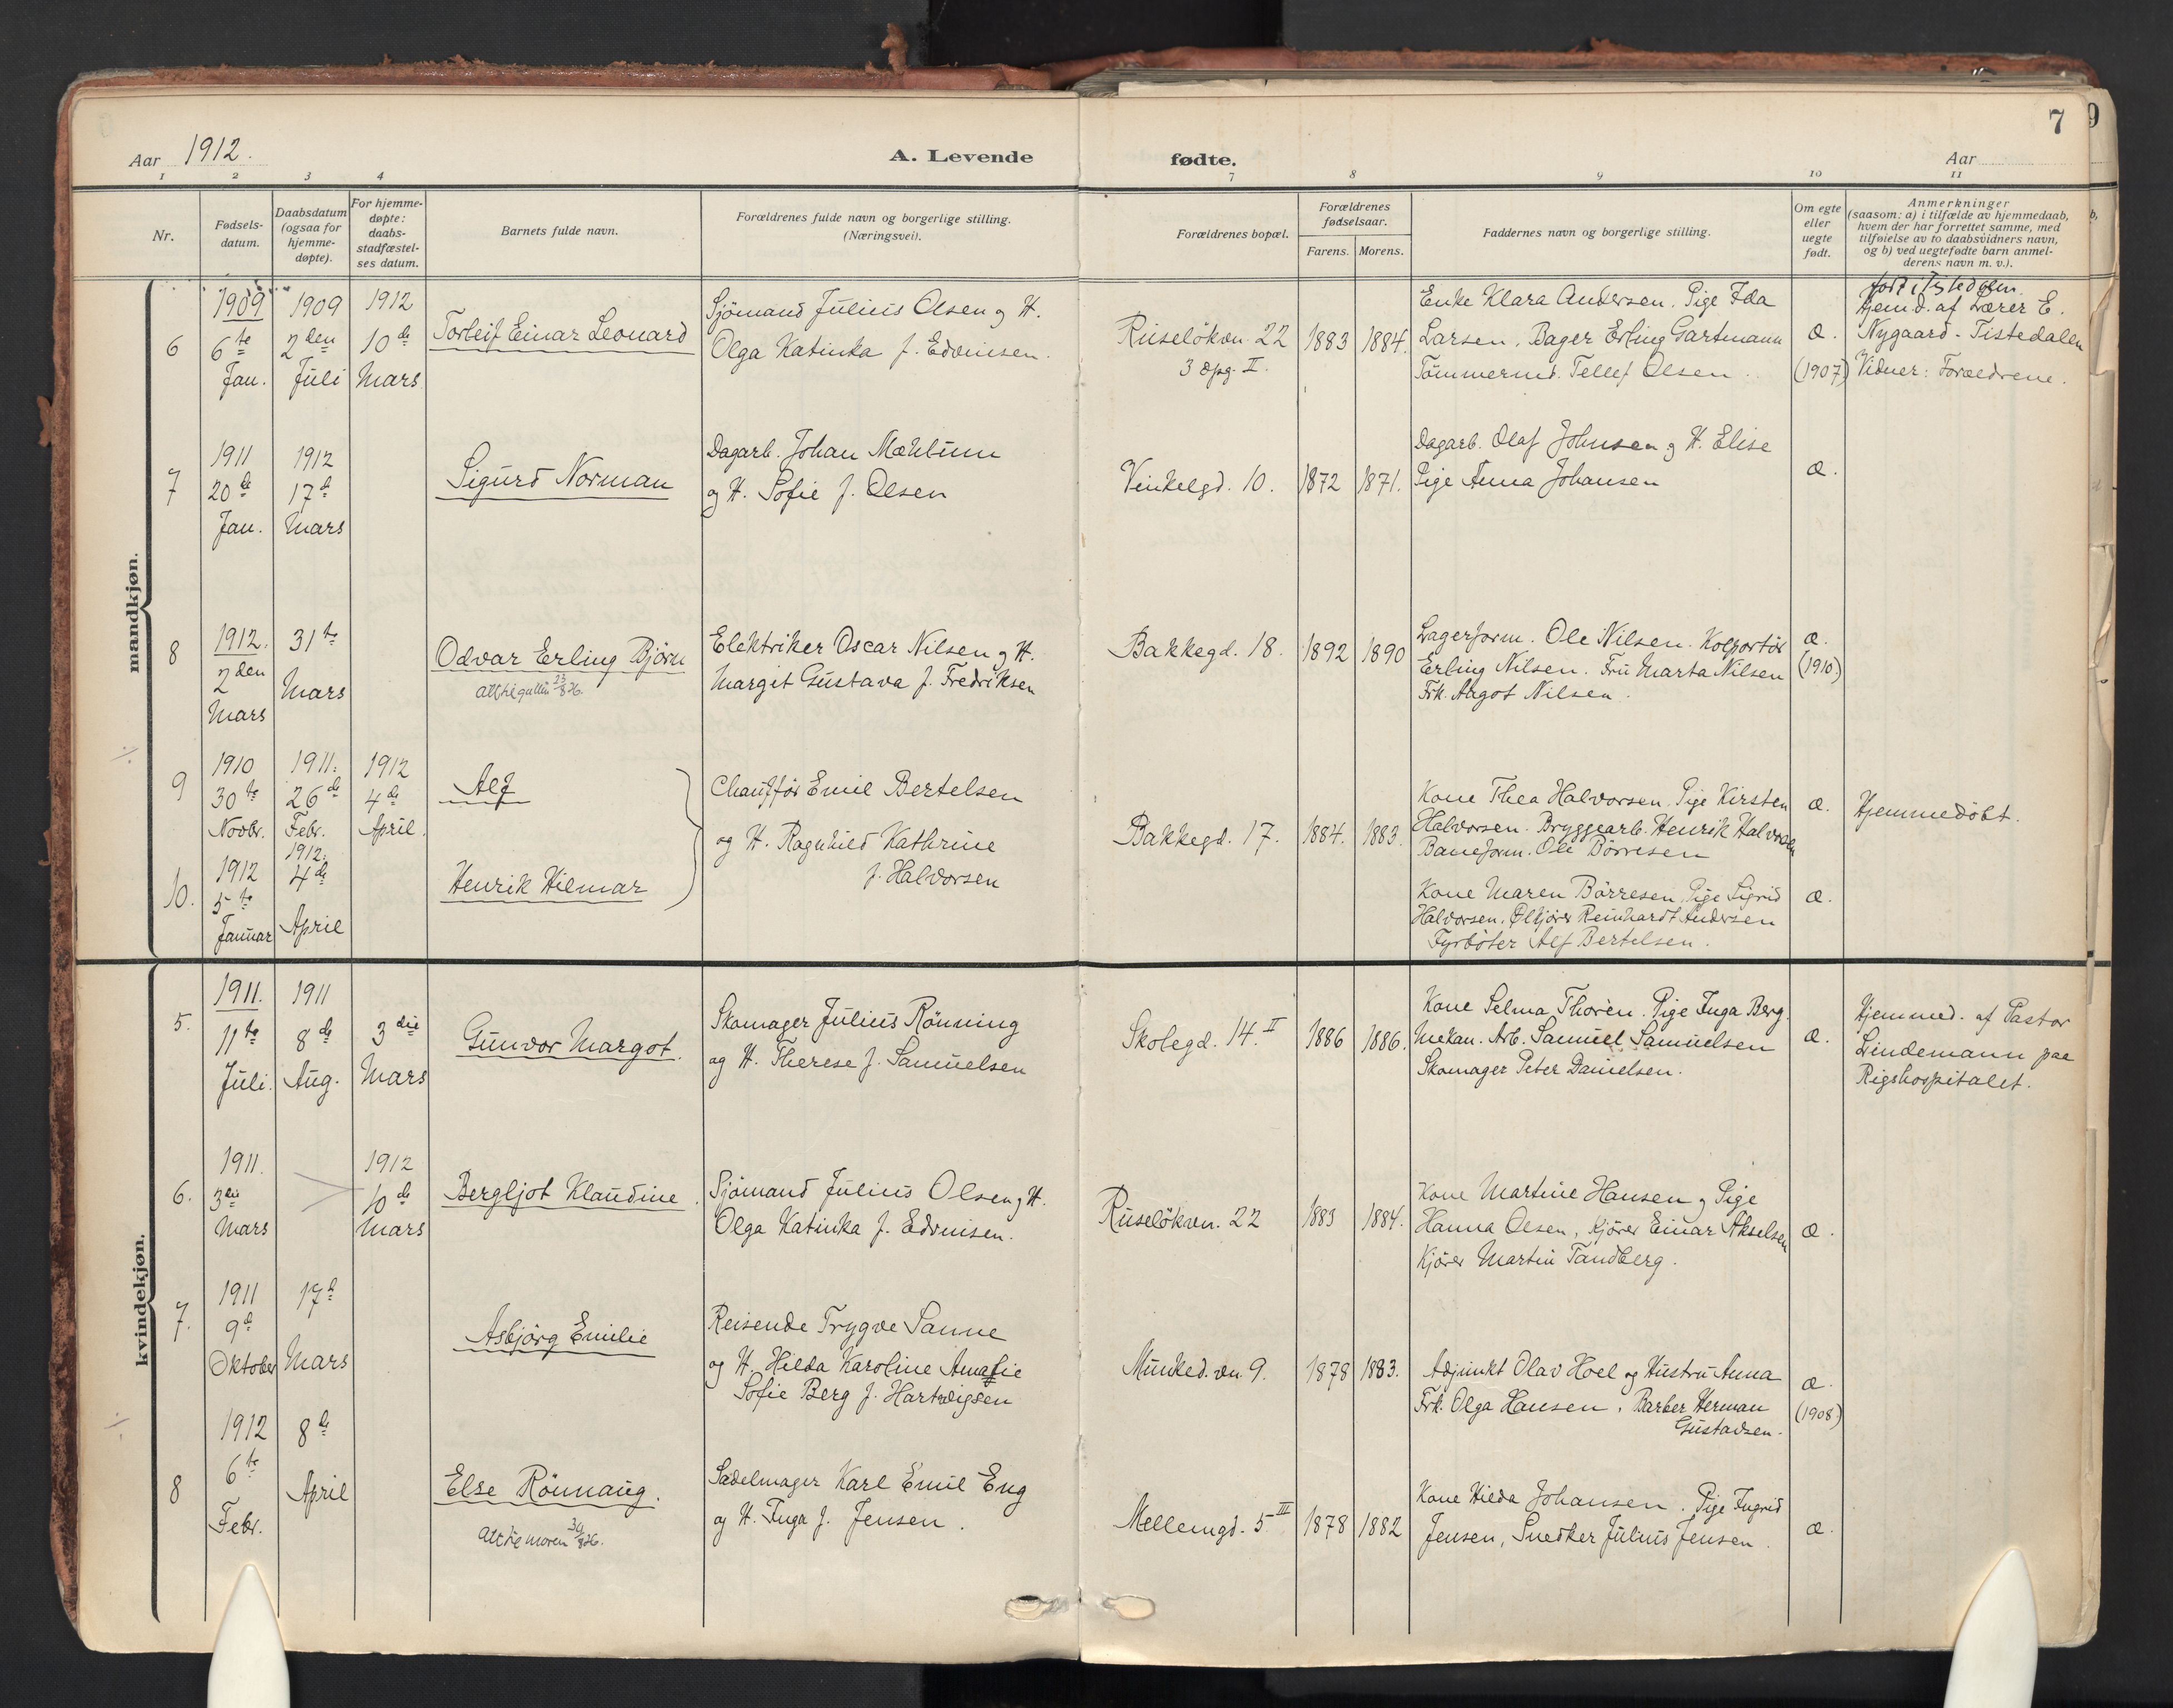 7
9
Aar 1912.
A. Levende
fødte.
Aar
1 2 3 4
7 8 9 10 11
Nr.
Fødsels-
datum.
Daabsdatum
(ogsaa for
hjemme-
døpte).
For hjemme-
døpte:
daabs-
stadfæstel-
ses datum.
Barnets fulde navn.
Forældrenes fulde navn og borgerlige stilling.
(Næringsvei).
Forældrenes bopæl.
Forældrenes
fødselsaar.
Farens. Morens.
Faddernes navn og borgerlige stilling.
Om egte
eller
uegte
født.
Anmerkninger
(saasom: a) i tilfælde av hjemmedaab,
hvem der har forrettet samme, med
tilføielse av to daabsvidners navn,
og b) ved uegtefødte barn anmel-
derens navn m. v.).
mandkjøn.
6
1909
6te
Jan.
1909
2den
Juli
1912
10de
Mars
Torleif Einar Leonard
Sjömand Julius Olsen og H.
Olga Katinka f. Edvinsen.
Ruselökvn. 22
3 opg. II.
1883
1884.
Enke Klara Andersen. Pige Ida
Larsen. Bager Erling Gartmann
Tömmermd. Tellef Olsen.
æ.
(1907)
Hjemd. af Lærer E.
Nygaard - Tistedalen
Vidner: Forældrene.
7
1911
20de
Jan.
1912
17de
Mars
Sigurd Norman
Dagarb. Johan Mæhlum
og H. Sofie f. Olsen
Vinkelgd. 10.
1872
1871.
Dagarb. Olaf Johnsen og H. Elise
Pige Anna Johansen
æ.
8
1912.
2den
Mars
31te
Mars
Odvar Erling Björn
Elektriker Oscar Nilsen og H.
Margit Gustava f. Fredriksen
Bakkegd. 18.
1892
1890
Lagerform. Ole Nilsen. Kolportör
Erling Nilsen. Fru Marta Nilsen
Frk. Argot Nilsen.
æ.
(1910)
9
1910
30te
Novbr.
1911.
26de
Febr.
1912
4de
April.
Alf
Chaufför Emil Bertelsen
og H. Ragnhild Kathrine
f. Halvorsen
Bakkegd. 17.
1884.
1883.
Kone Thea Halvorsen. Pige Kirsten
Halvorsen. Bryggearb. Henrik Halvorsen
Baneform. Ole Börresen
æ.
Hjemmedöbt.
10.
1912
5te
Januar
1912.
4de
April
Henrik Hilmar
Kone Maren Börresen, Pige Sigrid
Halvorsen, Ölkjörer Reinhardt Andersen
Fyrböter Alf Bertelsen.
æ.
kvindekjøn.
5.
1911.
11te
Juli.
1911
8de
Aug.
3die
Mars
Gunvor Margot.
Skomager Julius Rönning
og H. Therese f. Samuelsen
Skolegd. 14.II
1886
1886.
Kone Selma Thoren. Pige Inga Berg.
Mekan. Arb. Samuel Samuelsen
Skomager Peter Danielsen.
æ.
Hjemmed. af Pastor
Lindemann paa
Rigshospitalet.
6.
1911.
3die
Mars
1912
10de
Mars
Bergljot Klaudine.
Sjömand Julius Olsen og H.
Olga Katinka f. Edvinsen.
Ruselökvn. 22
1883
1884.
Kone Martine Hansen og Pige
Hanna Olsen, Kjörer Einar Akselsen
Kjörer Martin Tandberg.
æ.
7.
1911
9de
Oktober
17de
Mars
Asbjörg Emilie
Reisende Trygve Sanne
og H. Hilda Karoline Amalie
Sofie Berg f. Hartvigsen
Munked.vn. 9.
1878
1883.
Adjunkt Olav Hoel og Hustru Anna
Frk. Olga Hansen, Barber Herman
Gustavsen.
æ.
(1908)
8
1912
6te
Febr.
8de
April
Else Rönnaug.
Att til moren 30/8 26.
Sadelmager Karl Emil Eng
og H. Inga f. Jensen.
Mellemgd. 5III
1878
1882
Kone Hilda Johansen. Pige Ingrid
Jensen, Snedker Julius Jensen.
æ.